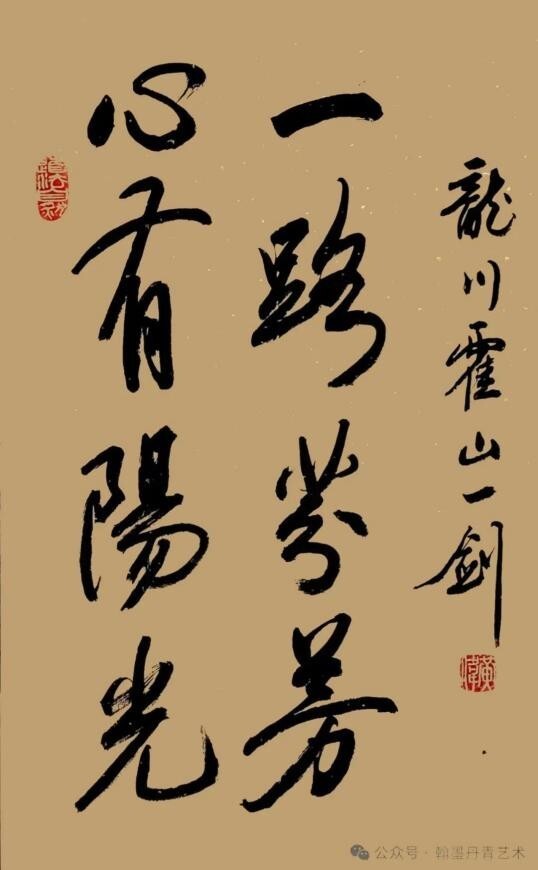 心有陽光
一路芬芳
龍川霍山一劍
公众号 · 翰墨丹青艺术